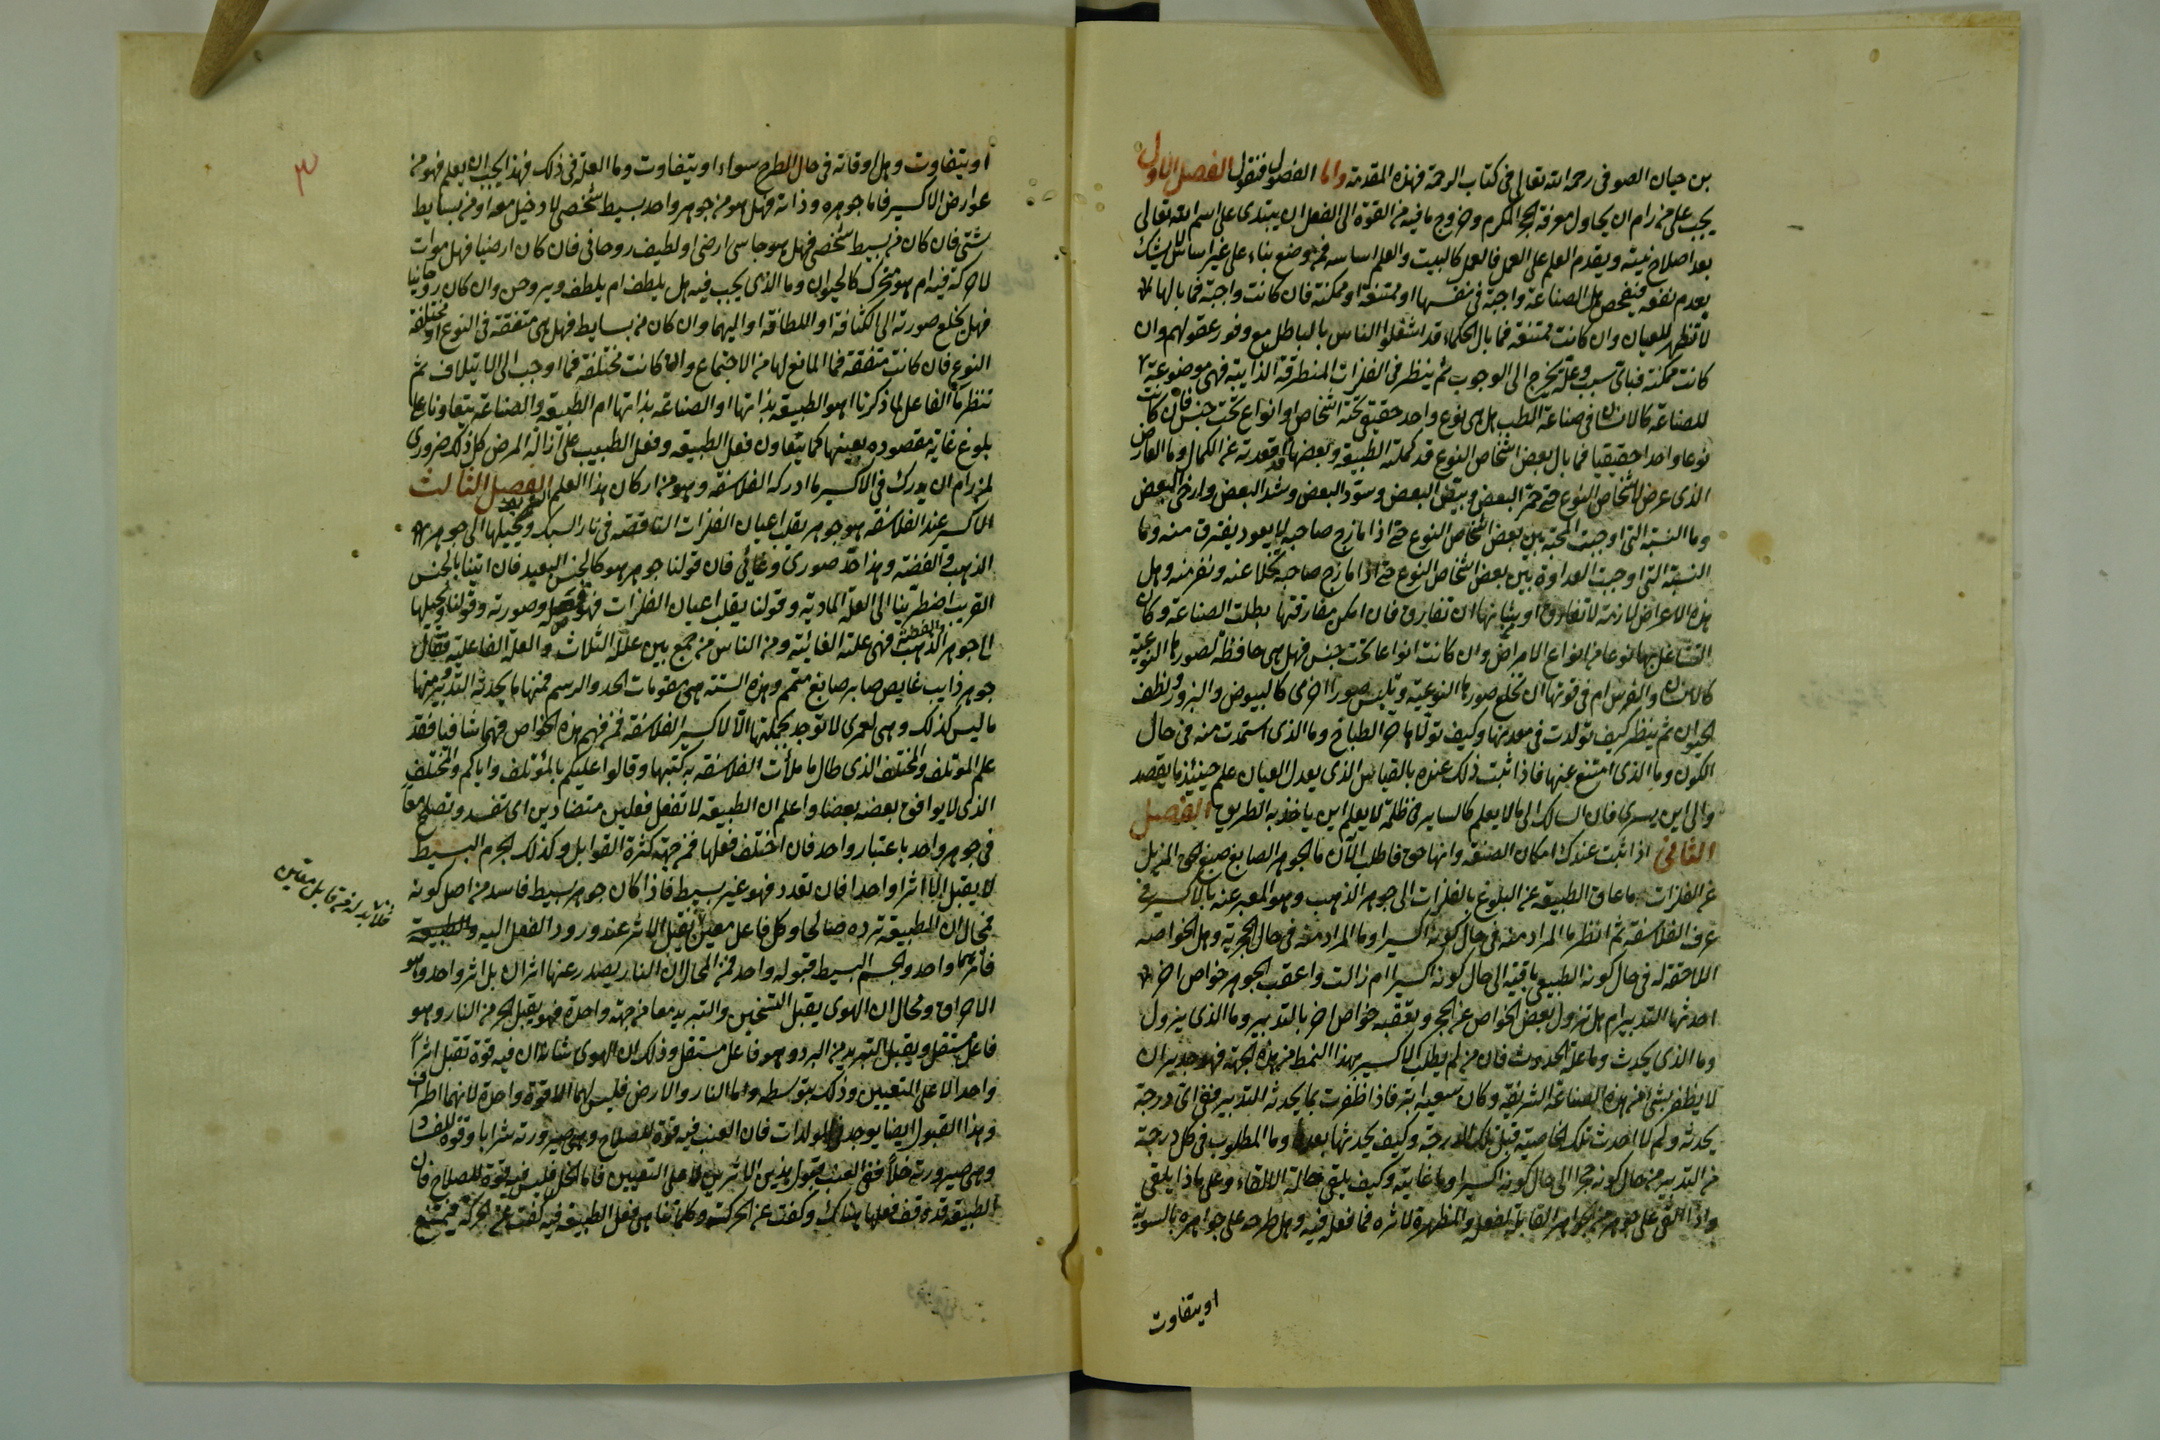 بن حيان الصوفى رحمه الله تعالى فى كتاب الرحمة فهذه المقدمة واما الفصول فنقول الفصل الاول
يجب على من رام ان يحاول معرفة الحجر المكرم وخروج ما فيه من القوة الى الفعل ان يبتدى على اسم الله تعالى
بعد اصلاح نيته ويقدم العلم على العمل فالعمل كالبيت والعلم اساسه فمن وضع بناء على غير اساس لا يشك
بعدم نفعه فيفحص هل الصناعة واجبة فى نفسها او ممتنعة او ممكنة فان كانت واجبة فما بالها
لا تظهر للعيان وان كانت ممتنعة فما بال الحكماء قد اشغلوا الناس بالباطل مع وفور عقولهم وان
كانت ممكنة فباى سبب وعلة يخرج الى الوجوب ثم ينظر فى الفلزات المنطرقة الذايبة فهى موضوعة
للصناعة كالانسان فى صناعة الطب هل هى نوع واحد حقيقى تحته اشخاص او انواع تحت جنس فان كانت
نوعا واحدا حقيقيا فما بال بعض اشخاص النوع قد كملته الطبيعة وبعضها قد قعدت عن الكمال وما العارض
الذى عرض لاشخاص النوع حتى حمر البعض وبيض البعض وسود البعض وشد البعض وارخى البعض
وما النسبة التى اوجبت المحبة بين بعض اشخاص النوع حتى اذا مازج صاحبه لا يعود يفترق منه وما
النسبة التى اوجبت العداوة بين بعض اشخاص النوع حتى اذا مازج صاحبه تخلا عنه ونفر منه وهل
هذه الاعراض لازمة لا تفارق او بشانها ان تفارق فان امكن مفارقتها بطلت الصناعة وكان
التشاغل بها نوعا من انواع الامراض وان كانت انواعا تحت جنس فهل هى حافظة لصورها النوعية
كالانسان والفرس ام فى قوتها ان تخلع صورها النوعية وتلبس صورا اخرى كالبيوض والبزور ونطف
الحيوان ثم ينظر كيف تولدت فى معدنها وكيف تولاها حر الطباخ وما الذى استمدت منه فى حال
الكون وما الذى امتنع عنها فاذا ثبت ذلك عنده بالقياس الذى يعدل العيان علم حينئذ ما يقصد
والى اين يسرى فان السالك الى ما لا يعلم كالساير فى ظلمة لا يعلم اين ياخذ به الطريق الفصل
الثانى اذا ثبت عندك امكان الصنعة وانها حق فاطلب الآن ما الجوهر الصابغ صبغ الحق المزيل
عن الفلزات ما عاق الطبيعة عن البلوغ بالفلزات الى جوهر الذهب وهو المعبر عنه بالاكسير فى
عرف الفلاسفة ثم انظر ما المراد منه فى حال كونه اكسيرا وما المراد منه فى حال الحجرية وهل الخواص
اللاحقة له فى حال كونه الطبيعى باقية الى حال كونه اكسيرا ام زالت واعقب الجوهر خواص اخر
احدثها التدبير ام هل تزول بعض الخواص عن الحجر ويعقبه خواص اخر بالتدبير وما الذى يزول
وما الذى يحدث وما علة الحدوث فان من لم يطلب الاكسير بهذا النمط من هذه الجهة فهو جدير ان
لا يظفر بشئ من هذه الصناعة الشريفة وكان سعيه ابتر فاذا ظفرت بما يحدثه التدبير ففى اى درجة
يحدثه ولم لا احدث تلك الخاصية قبل تلك الدرجة وكيف يحدثها بعد وما المطلوب فى كل درجة
من التدبير من حال كونه حجرا الى حال كونه اكسيرا وما غايته وكيف يلقى حالة الالقاء وعلى ماذا يلقى
واذا القى على جوهر من الجواهر القابلة لفعله والمظهرة لاثره فما فعله فيه وهل طرحه على جواهره بالسوية
او يتفاوت
٣
او يتفاوت وهل اوقاته فى حال الطرح سواء او يتفاوت وما العلة فى ذلك فهذا يجب ان يعلم فهو من
عوارض الاكسير فاما جوهره وذاته فهل هو من جوهر واحد بسيط شخصى لا دخيل معه او من بسايط
شتى فان كان من بسيط شخصى فهل هو جاسى ارضى او لطيف روحانى فان كان ارضيا فهل موات
لا حركة فيه ام هو متحرك كالحيوان وما الذى يجب فيه هل يلطف ام يلطف ويروحن وان كان روحانيا
فهل يخلع صورته الى الكثافة او اللطافة او اليهما وان كان من بسايط فهل هى متفقة فى النوع او مختلفة
النوع فان كانت متفقة فما المانع لها من الاجتماع وان كانت مختلفة فما اوجب الى الايتلاف ثم
تنظر ما الفاعل لما ذكرنا اهو الطبيعة بذاتها او الصناعة بذاتها ام الطبيعة والصناعة يتعاونا على
بلوغ غاية مقصوده بعينها كما يتعاون فعل الطبيعة وفعل الطبيب على ازالة المرض كل ذلك ضرورى
لمن رام ان يدرك فى الاكسير ما ادركه الفلاسفة وهو من اركان هذا العلم الفصل الثالث
الاكسير عند الفلاسفة هو جوهر يقلب اعيان الفلزات الناقصة فى نار السبك ويحيلها الى جوهر
الذهب او الفضة وهذا حد صورى وغائى فان قولنا جوهر هو كالجنس البعيد فان اتينا بالجنس
القريب اضطرينا الى العلة المادية وقولنا يقلب اعيان الفلزات فهو فصله وصورته وقولنا ويحيلها
الى جوهر الذهب والفضة فهى علته الغائية ومن الناس من جمع بين علله الثلاث والعلة الفاعلية فقال
جوهر ذايب غايص صابر صابغ متمم وهذه الستة هى مقومات الحد والرسم فمنها ما يحدثه التدبير ومنها
ما ليس كذلك وهى لعمرى لا توجد بجملتها الا لاكسير الفلاسفة فمن فهم هذه الخواص فهما شافيا فقد
علم الموتلف والمختلف الذى طال ما ملأت الفلاسفة به كتبها وقالوا عليكم بالمؤتلف واياكم والمختلف
الذى لا يوافق بعضه بعضا واعلم ان الطبيعة لا تفعل فعلين متضادين اى تفسد وتصلح معا
فى جوهر واحد باعتبار واحد فان اختلف فعلها فمن جهة كثرة القوابل وكذلك الجرم البسيط
لا يقبل الا اثرا واحدا فان تعدد فهو غير بسيط فاذا كان جوهر بسيط فاسد من اصل كونه
فمحال ان الطبيعة ترده صالحا وكل فاعل معين يقبل الاثر عند ورود الفعل اليه والطبيعة
فلا بد له من قابل معين
واحد والجسم البسيط قبوله واحد فمن المحال ان النار يصدر عنها اثران بل اثر واحد وهو
الاحراق ومحال ان الهوى يقبل التسخين والتبريد معا من جهة واحدة فهو يقبل الحر من النار وهو
فاعل مستقل ويقبل التبريد من البرد وهو فاعل مستقل وذلك لان الهوى شانه ان فيه قوة تقبل اثرا
واحدا لا على التعيين وذلك بتوسطه واما النار والارض فليس لهما الا قوة واحدة لانهما اطراف
وهذا القبول ايضا يوجد فى المولدات فان العنب فيه قوة للصلاح وهى صيرورته شرابا وقوة للفساد
وهى صيرورته خلاً ففى العنب قبول هذين الاثرين لا على التعيين فاما الخل فليس فيه قوة للصلاح فان
الطبيعة قد وقف فعلها هناك وكفت عن الحركة وكلما تناهى فعل الطبيعة فيه كفت عن الحركة فيمتنع